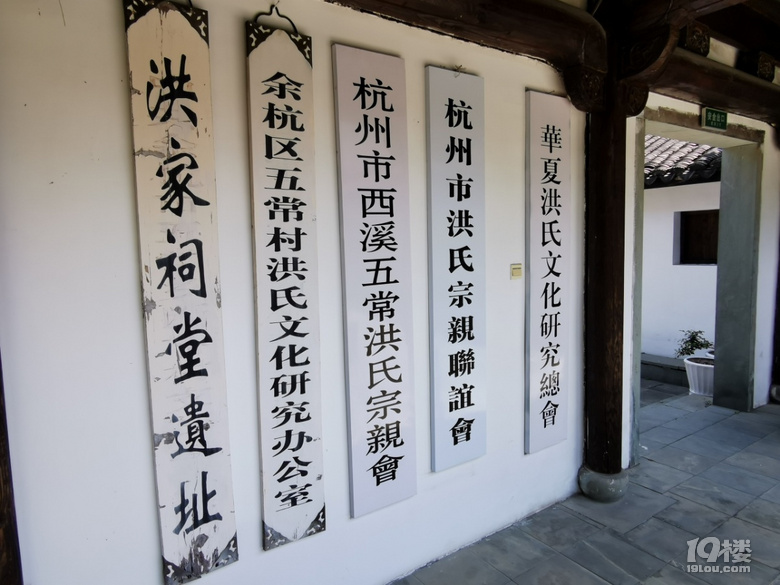 洪家祠堂遺址
余杭区五常村洪氏文化研究办公室
杭州市西溪五常洪氏宗親會
杭州市洪氏宗親聯誼會
華夏洪氏文化研究總會
安全出口
19楼
19lou.com